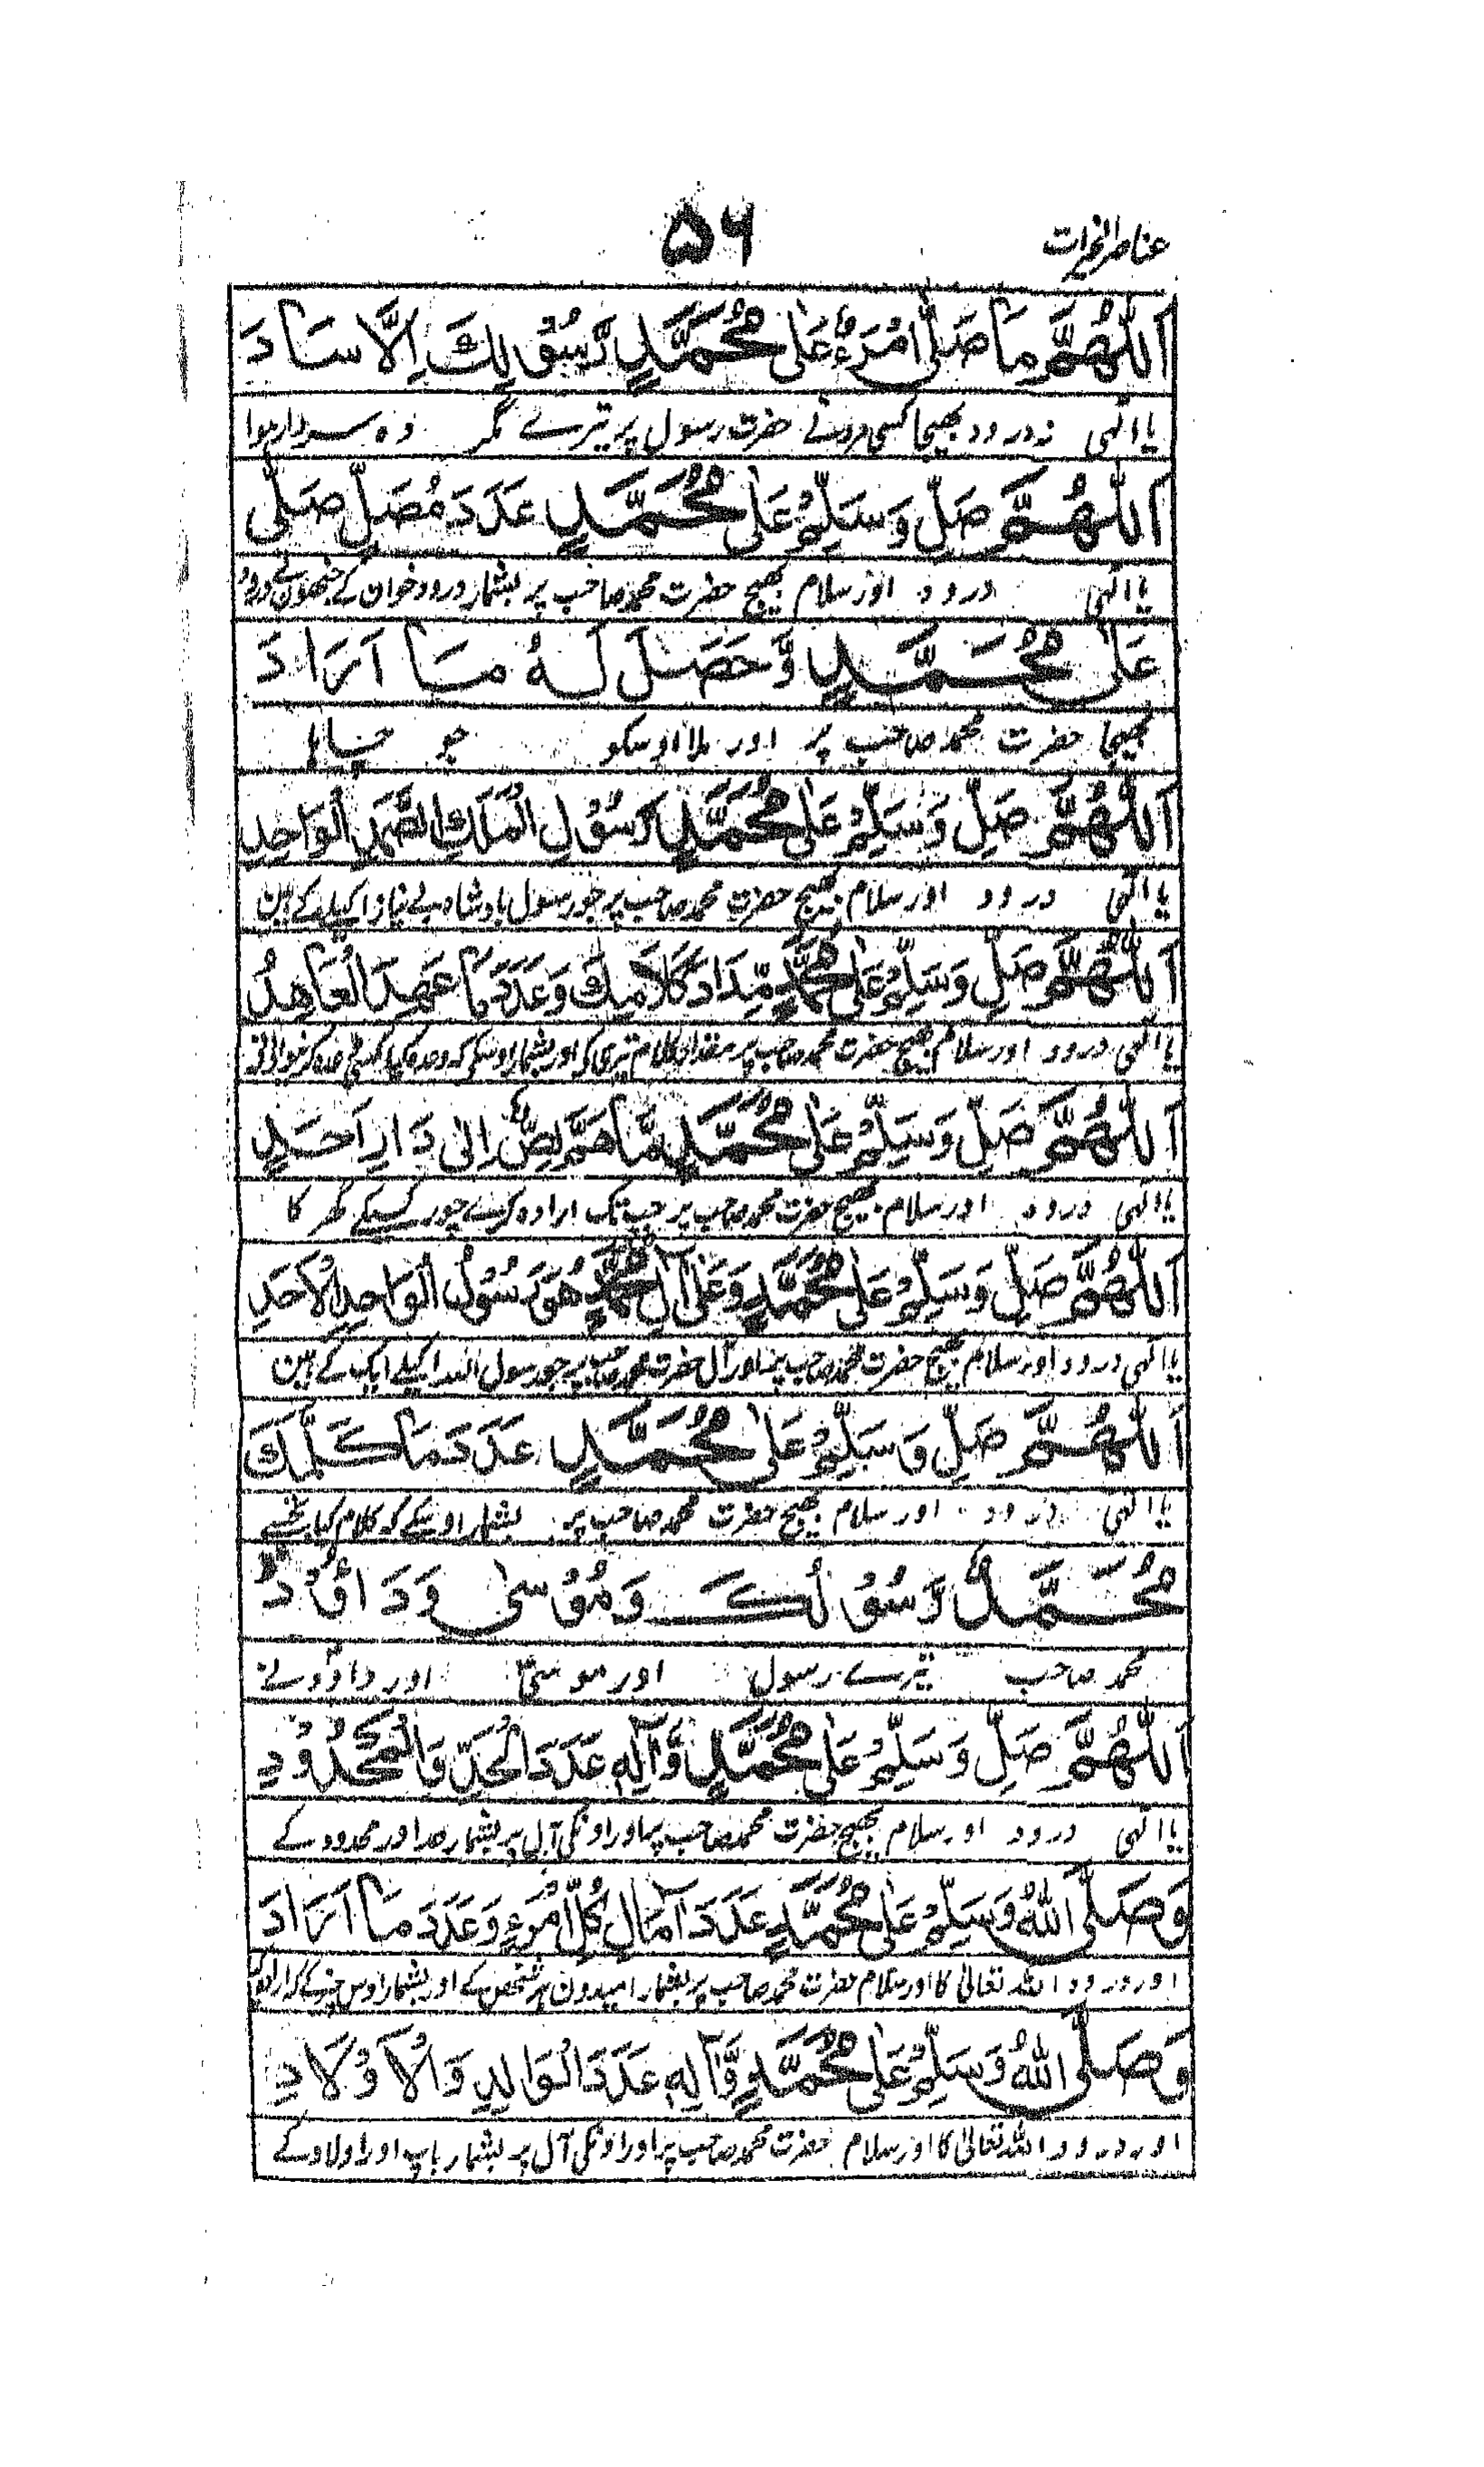 عناصر الخیرات
۵۶
اَللّٰهُمَّ مَا صَلَّى امْرَءٌ عَلٰى مُحَمَّدٍ رَّسُوْلِكَ اِلَّا سَادَ
یا الٰہی نہ درود بھیجا کسی مرد نے حضرت رسول پر تیرے مگر وہ سردار ہوا
اَللّٰهُمَّ صَلِّ وَسَلِّمْ عَلٰى مُحَمَّدٍ عَدَدَ مُصَلٍّ صَلّٰى
یا الٰہی درود اور سلام بھیج حضرت محمد صاحب پر بشمار درود خوان کے جنھون نے درود
عَلٰى مُحَمَّدٍ وَّحَصَلَ لَهُ مَا اَرَادَ
بھیجا حضرت محمد صاحب پر اور ملا اوسکو جو چاہا
اَللّٰهُمَّ صَلِّ وَسَلِّمْ عَلٰى مُحَمَّدٍ رَسُوْلِ الْمَلِكِ الصَّمَدِ الْوَاحِدِ
یا الٰہی درود اور سلام بھیج حضرت محمد صاحب پر جو رسول بادشاہ بے نیاز اکیلے کے ہین
اَللّٰهُمَّ صَلِّ وَسَلِّمْ عَلٰى مُحَمَّدٍ مِّدَادَ كَلَامِكَ وَعَدَدَ مَا عَهِدَ الْعَاهِدُ
یا الٰہی درود اور سلام بھیج حضرت محمد صاحب پر مقدار کلام تیری کے اور بشمار اوسکے کہ وعدہ کیا کسی وعدہ کرنیوالے نے
اَللّٰهُمَّ صَلِّ وَسَلِّمْ عَلٰى مُحَمَّدٍ مَّا هَمَّ لِصٌّ اِلٰى دَارِ اَحَدٍ
یا الٰہی درود اور سلام بھیج حضرت محمد صاحب پر جب تک ارادہ کرے چور کسیکے گھر کا
اَللّٰهُمَّ صَلِّ وَسَلِّمْ عَلٰى مُحَمَّدٍ وَعَلٰى اٰلِ مُحَمَّدٍ هُوَ رَسُوْلُ الْوَاحِدِ الْاَحَدِ
یا الٰہی درود اور سلام بھیج حضرت محمد صاحب پر اور آل حضرت محمد صاحب پر جو رسول اللہ اکیلے ایک کے ہین
اَللّٰهُمَّ صَلِّ وَسَلِّمْ عَلٰى مُحَمَّدٍ عَدَدَ مَا كَلَّمَكَ
یا الٰہی درود اور سلام بھیج حضرت محمد صاحب پر بشمار اوسکے کہ کلام کیا تجھسے
مُحَمَّدٌ رَّسُوْلُكَ وَمُوْسٰى وَدَاوٗدُ
محمد صاحب تیرے رسول اور موسیٰ اور داؤد نے
اَللّٰهُمَّ صَلِّ وَسَلِّمْ عَلٰى مُحَمَّدٍ وَّاٰلِهٖ عَدَدَ الْحَدِّ وَالْمَحْدُوْدِ
یا الٰہی درود اور سلام بھیج حضرت محمد صاحب پر اور اونکی آل پر بشمار حد اور محدود کے
وَصَلَّى اللّٰهُ وَسَلِّمْ عَلٰى مُحَمَّدٍ عَدَدَ اٰمَالِ كُلِّ امْرَءٍ وَعَدَدَ مَا اَرَادَ
اور درود اللہ تعالیٰ کا اور سلام حضرت محمد صاحب پر بشمار امیدون ہر شخص کے اور بشمار اوس چیز کے کہ ارادہ کیا
وَصَلَّى اللّٰهُ وَسَلِّمْ عَلٰى مُحَمَّدٍ وَّاٰلِهٖ عَدَدَ الْوَالِدِ وَالْاَوْلَادِ
اور درود اللہ تعالیٰ کا اور سلام حضرت محمد صاحب پر اور اونکی آل پر بشمار باپ اور اولاد کے